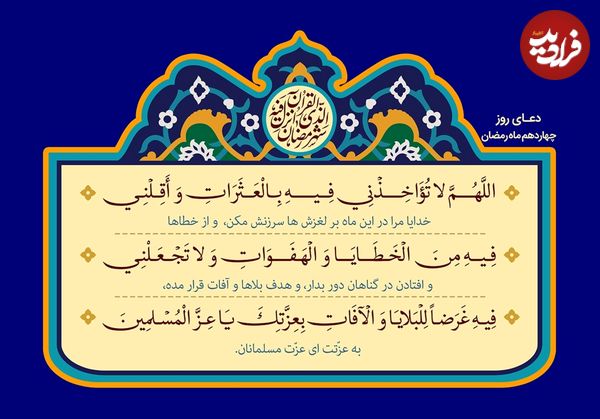 فرادید
دعـای روز
چهاردهم ماه رمضان
شهر رمضان الذی انزل فیه القرآن
اللَّهُمَّ لا تُؤَاخِذْنِي فِيهِ بِالْعَثَرَاتِ وَ أَقِلْنِي
خدایا مرا در این ماه بر لغزش ها سرزنش مکن، و از خطاها
فِيهِ مِنَ الْخَطَايَا وَ الْهَفَوَاتِ وَ لا تَجْعَلْنِي
و افتادن در گناهان دور بدار، و هدف بلاها و آفات قرار مده،
فِيهِ غَرَضاً لِلْبَلايَا وَ الْآفَاتِ بِعِزَّتِكَ يَا عِزَّ الْمُسْلِمِينَ
به عزّتت ای عزّت مسلمانان.